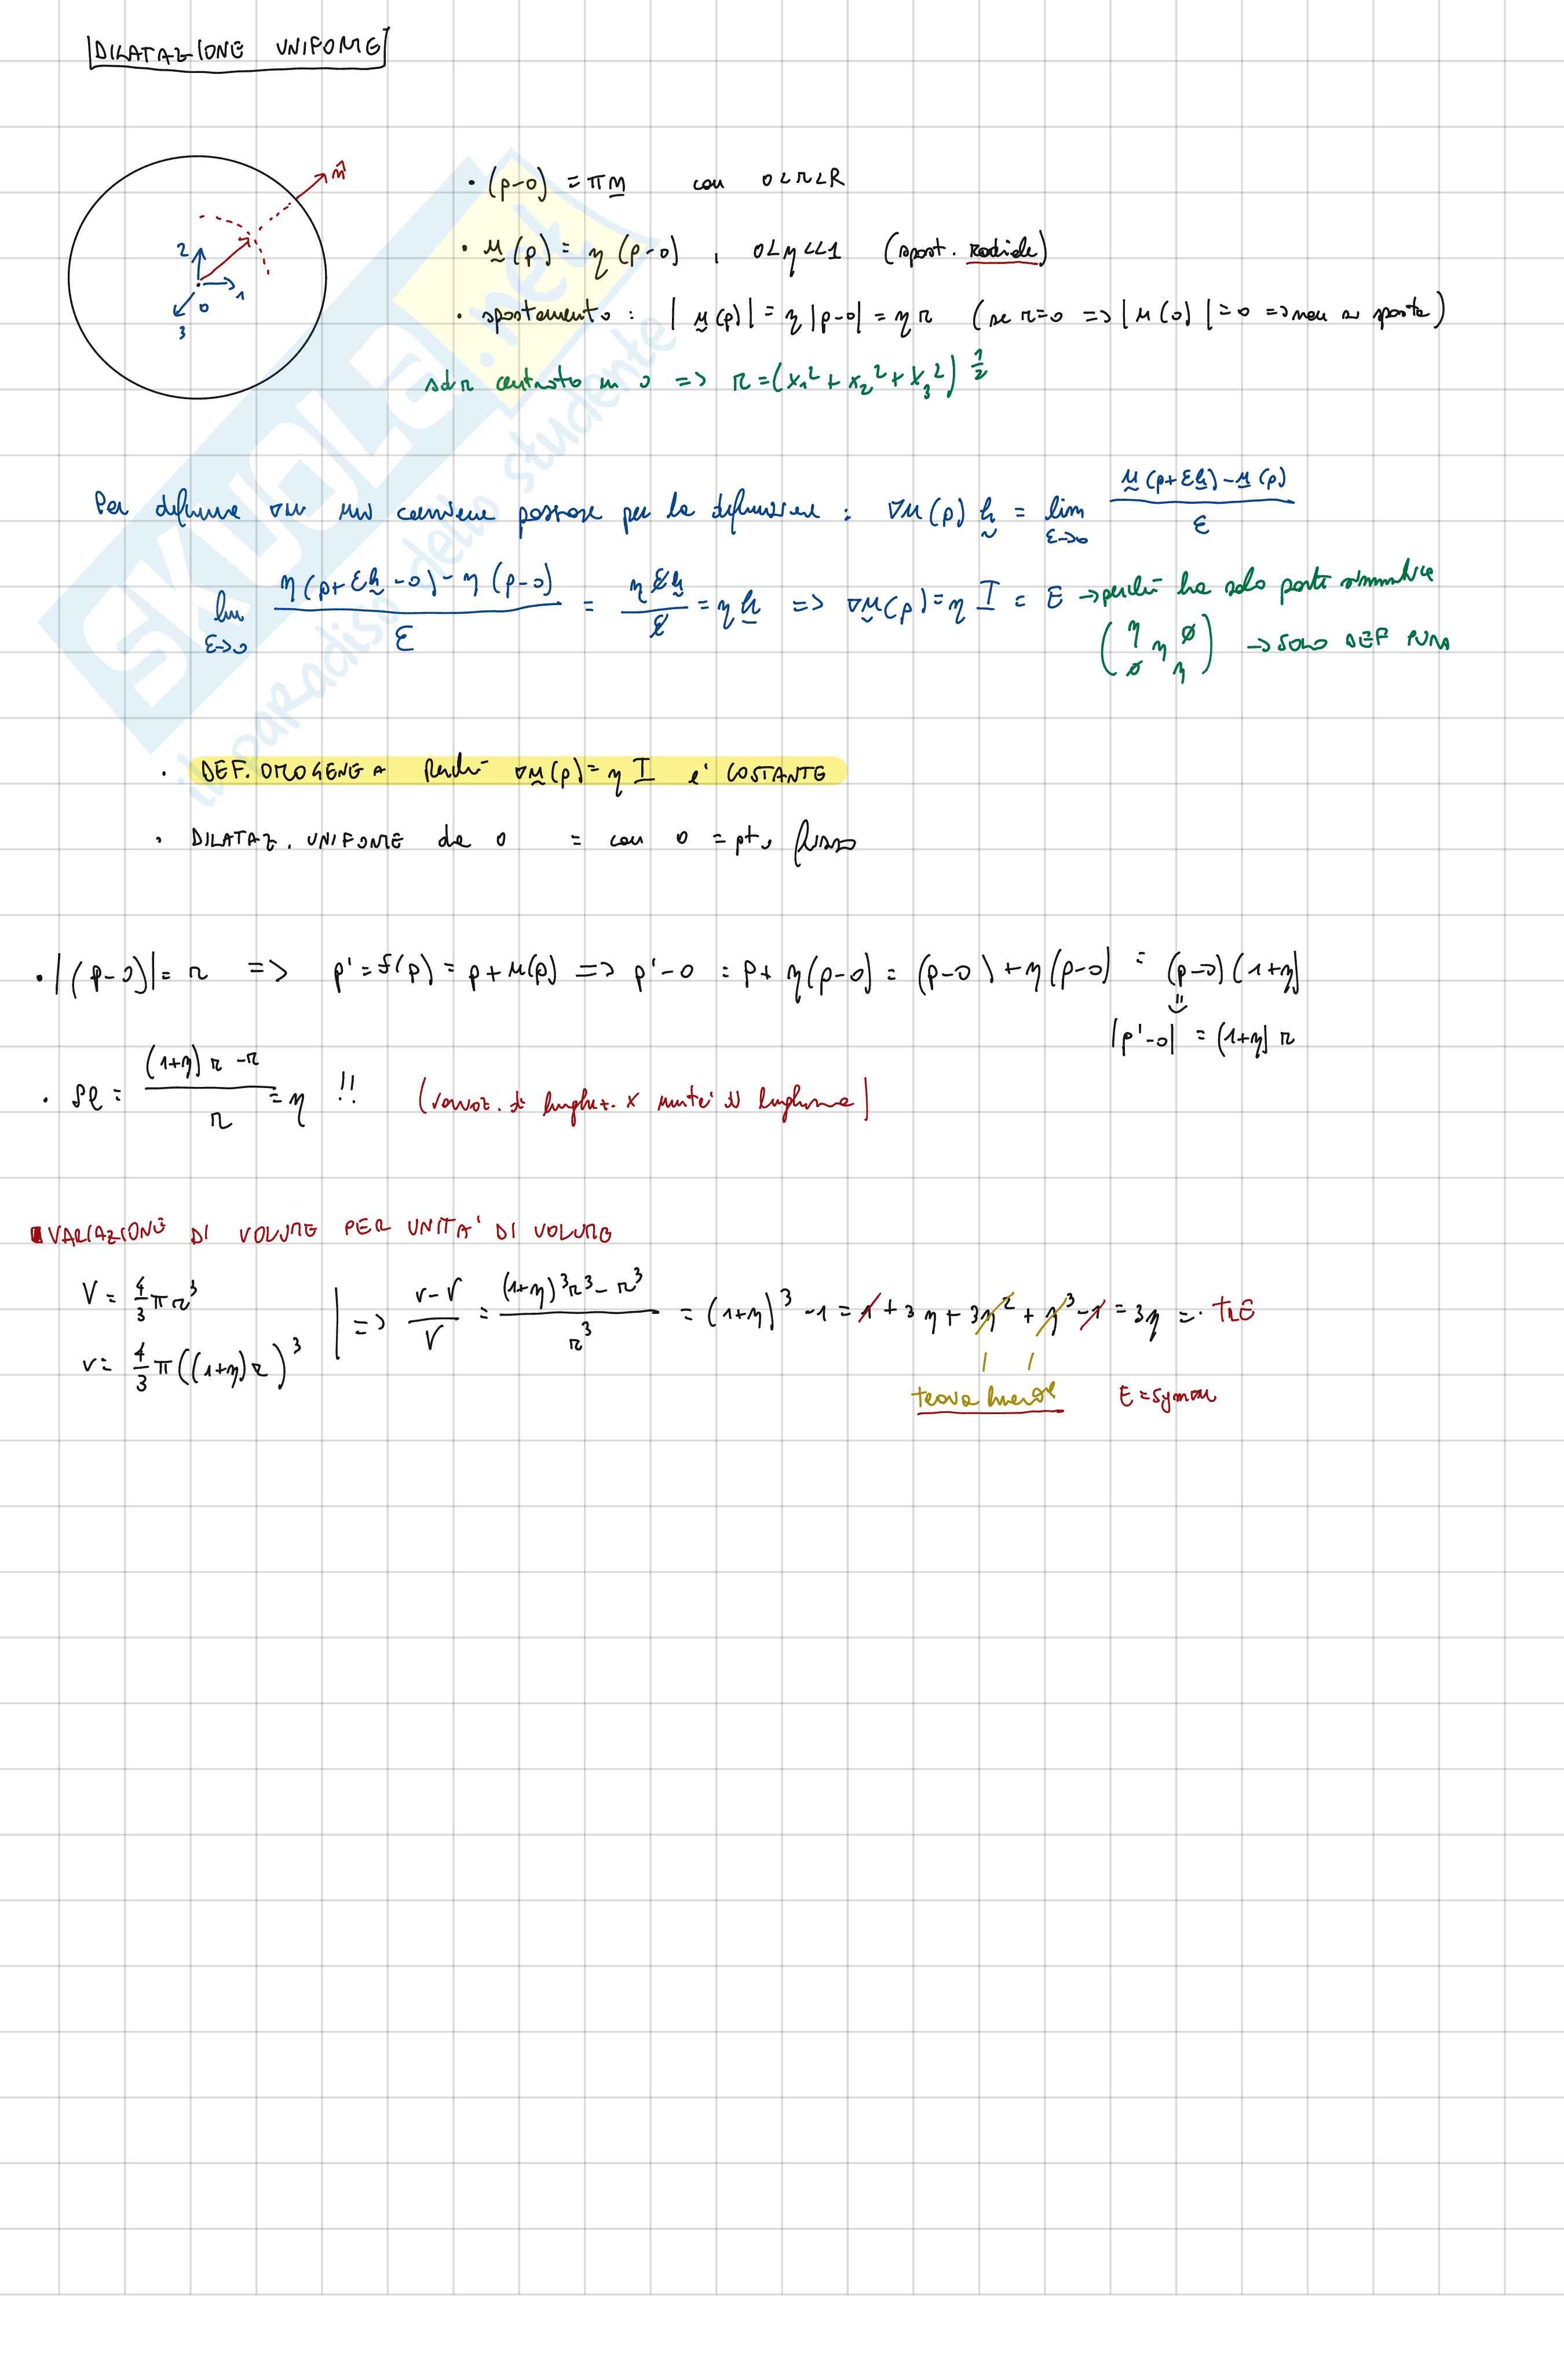 DILATAZIONE UNIFORME
n
2
1
0
3
• (p-o) = r n con 0<r<R
• u(p) = η (p-o) , 0<η<<1 (spost. radiale)
• spostamento : |u(p)| = η |p-o| = η r (se r=0 => |u(o)|=0 => non si sposta)
sdr centrato in o => r = (x₁² + x₂² + x₃²)^½
Per definire ∇u mi conviene passare per la definizione : ∇u(p) h = lim ε->0 (u(p+εh) - u(p)) / ε
lim ε->0 (η(p+εh-o) - η(p-o)) / ε = ηεh / ε = η h => ∇u(p) = η I = E -> perché ha solo parte simmetrica
(η η ∅ ∅ η) -> SOLO DEF PURA
• DEF. OMOGENEA Perché ∇u(p) = η I è COSTANTE
• DILATAZ. UNIFORME da o = con o = pto fisso
• |(p-o)| = r => p' = f(p) = p + u(p) => p'-o = p + η(p-o) = (p-o) + η(p-o) = (p-o)(1+η)
|p'-o| = (1+η) r
• δl = ((1+η) r - r) / r = η !! (variaz. di lunghez. x unità di lunghezza)
VARIAZIONE DI VOLUME PER UNITA' DI VOLUME
V = 4/3 π r³
v = 4/3 π ((1+η) r)³
=> (v-V) / V = ((1+η)³r³ - r³) / r³ = (1+η)³ - 1 = 1 + 3η + 3η² + η³ - 1 = 3η = trE
teoria lineare E = sym ∇u
SKUOLA.net
il paradiso dello studente